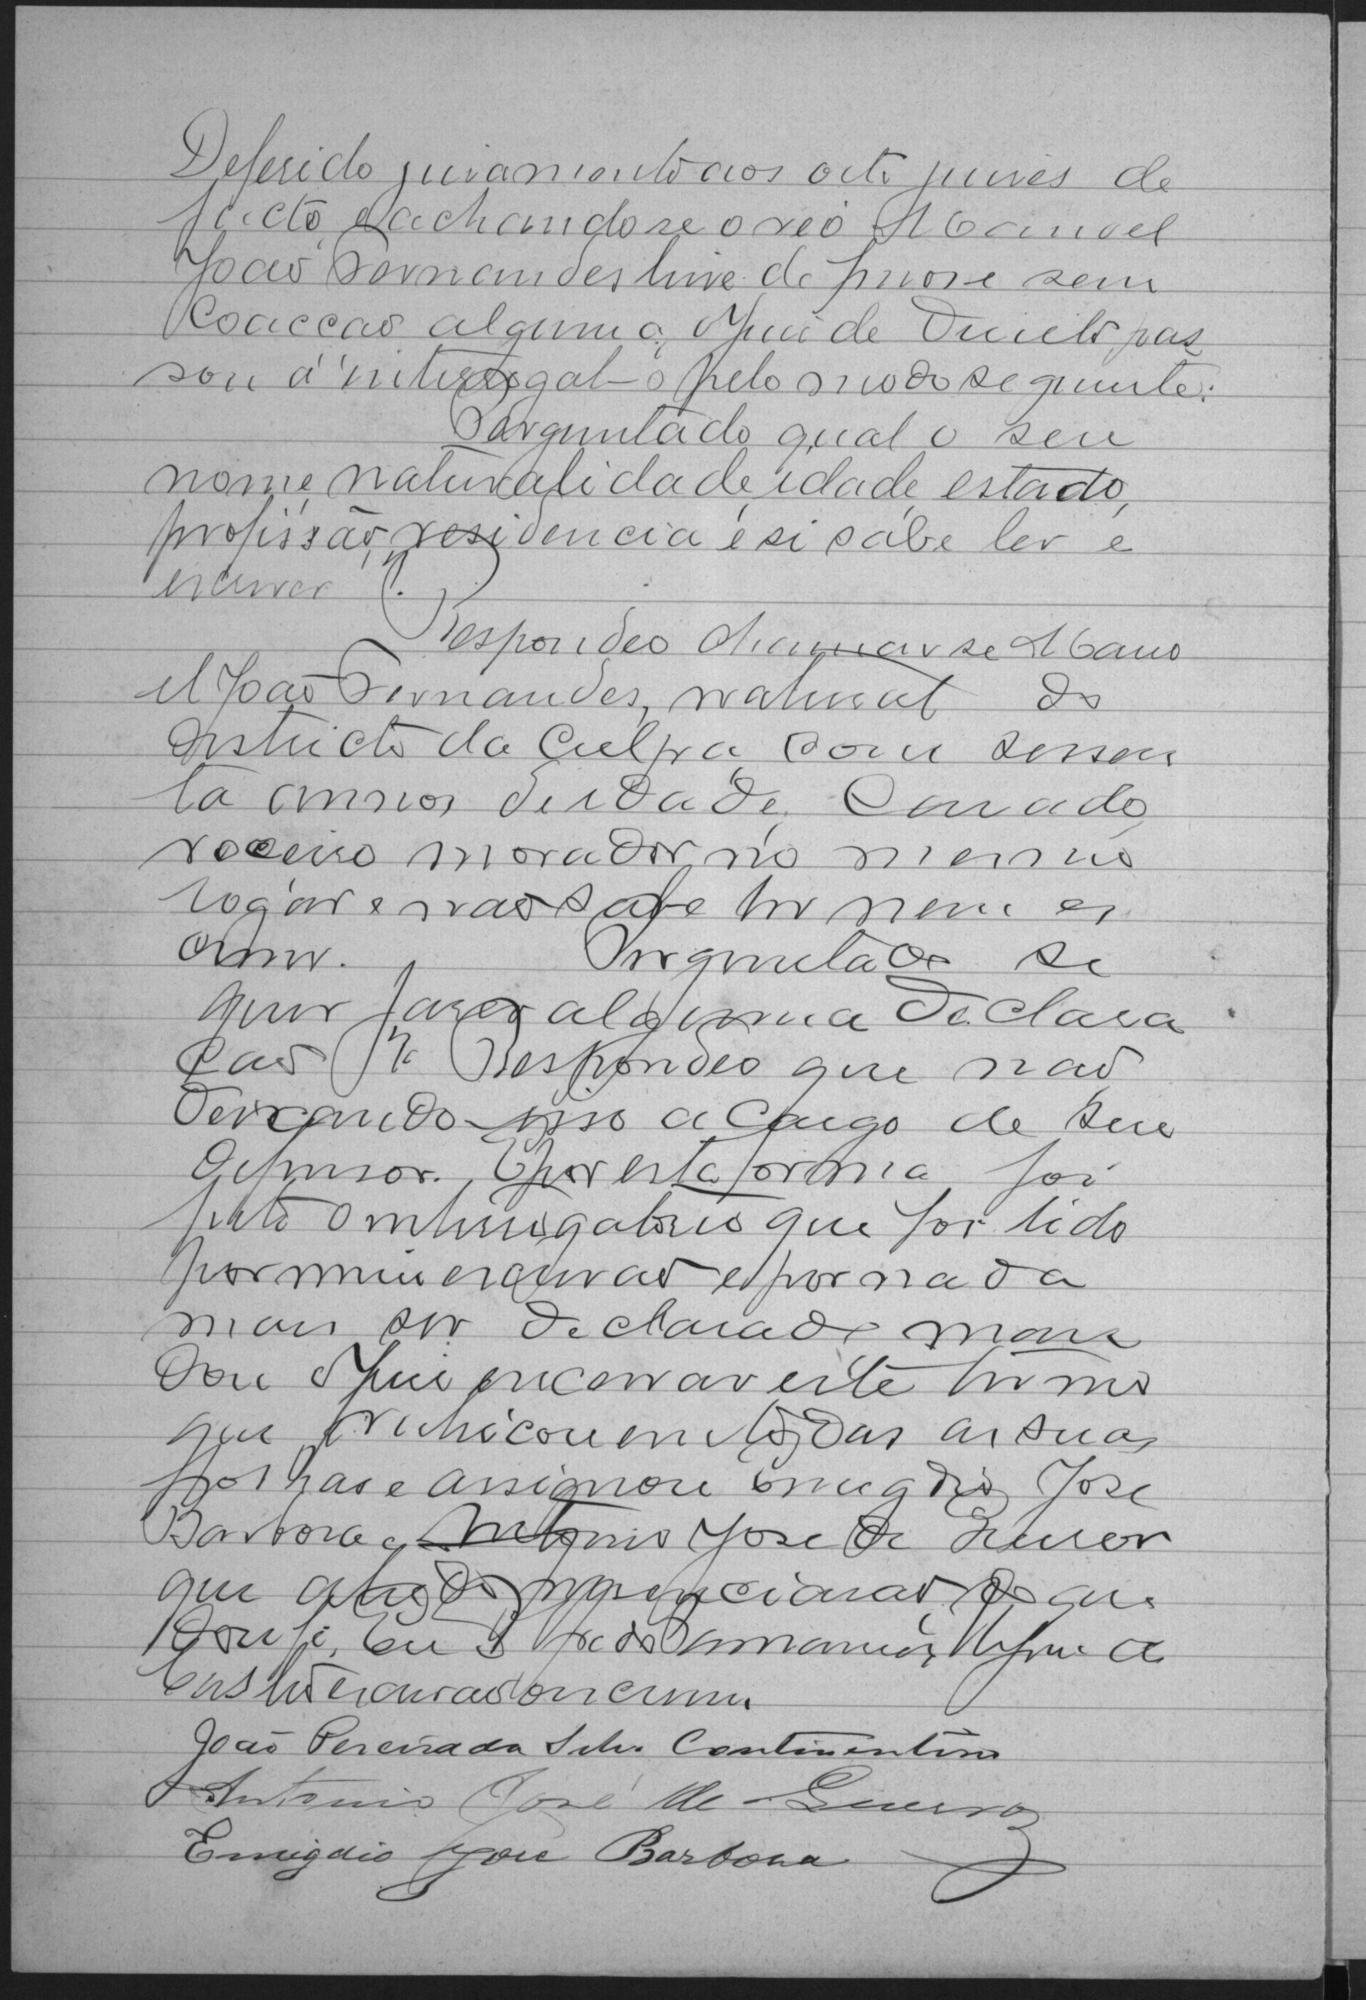 Deferido juramento aos oito juizes de
facto, e achandose o reo Manoel
João Fernandes livre de prisoe sem
Coacção alguma, o Juiz de Direito pas
sou á interrogal-o pelo modo seguinte:
Perguntado qual o seu
nome, naturalidade, idade, estado,
profissão, residencia e si sabe ler e
escrever?
Respondeo chamar se Mano
el João Fernandes, natural do
districto da Culpa, com sessen
ta annos de idade, Casado,
roceiro morador no mesmo
logar e não sabe ler nem es
crever. Perguntado se
quer fazer alguma declara
ção? Respondeo que não
deixando isso a cargo de seu
defensor. E por esta forma foi
feito o interrogatorio que foi lido
por mim escrivão e por nada
mais ser declarado man
dou o Juiz encerrar este termo
que rubricou em todas as suas
folhas e assignou Emigdio José
Barbosa e Antonio José de
que presenciarão do que
dou fé. Eu
escrivão o escrevi.
João Pereira da Silva Continentino
Antonio José de
Emigdio José Barbosa